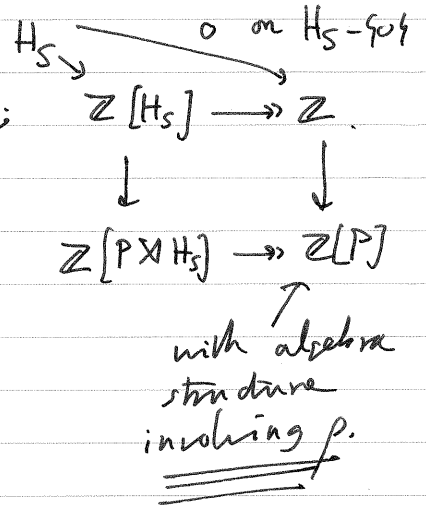 H_S 0 on H_S - {0}
; ℤ[H_S] ↠ ℤ.
ℤ[P ⋊ H_S] ↠ ℤ[P]
with algebra
structure
involving ρ.